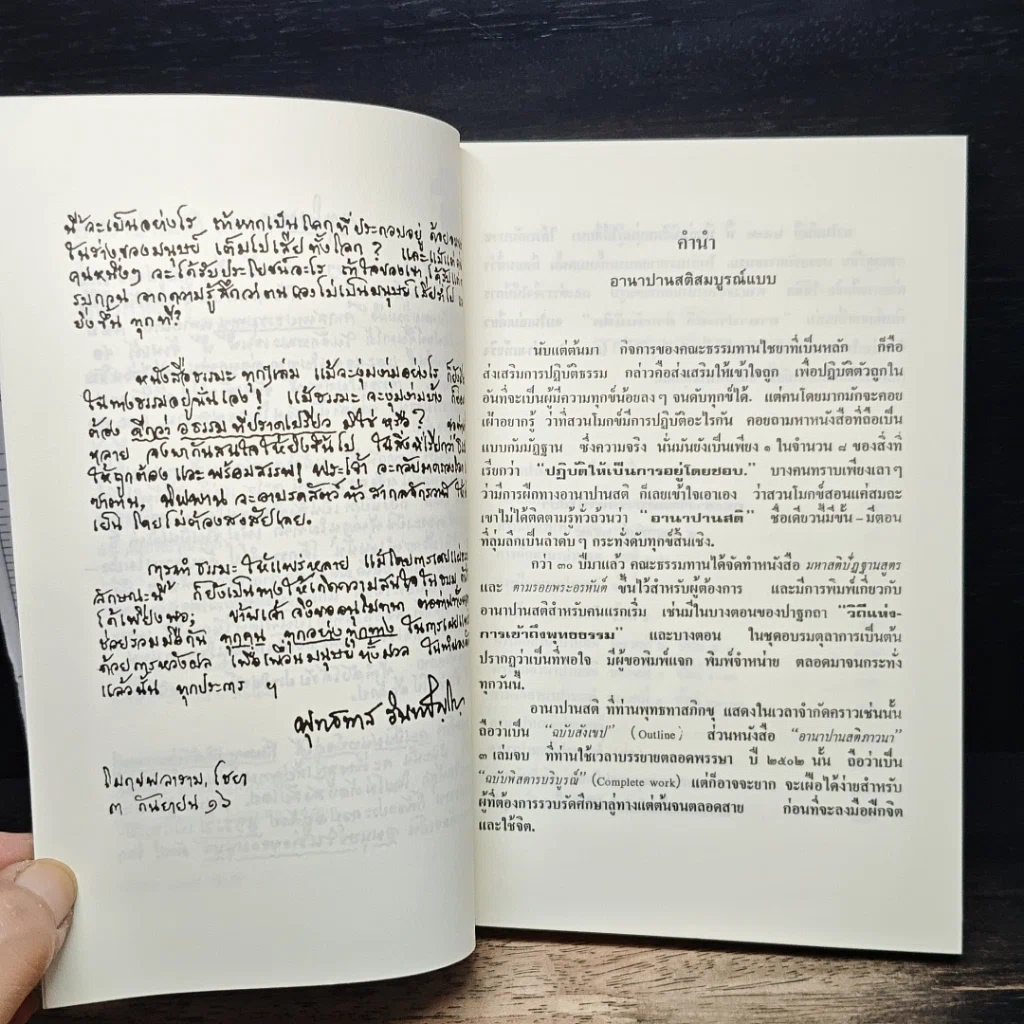 นี้จะเป็นอย่างไร ถ้าหากเป็นโลกที่ประกอบอยู่ ด้วย
ในร่างของมนุษย์ เต็มไปเสียทั้งโลก? และแม้แต่
คนหนึ่งๆ จะได้รับประโยชน์อะไร ถ้าใจของเขา ได้รับ
รบกวน จากความรู้สึกว่าตนเองไม่เป็นมนุษย์ เสียทำไป
ยิ่งขึ้น ทุกที?
หนังสือธรรมะ ทุกๆเล่ม แม้จะงุ่มง่ามอย่างไร ก็ยัง
ในทางธรรมอยู่นั่นเอง! แม้ธรรมะ จะงุ่มง่ามบ้าง ก็
ต้อง ดีกว่า อธรรม ที่ปราดเปรียว มิใช่ หรือ?
หลาย จงพากันสนใจให้ยิ่งขึ้นไป ในสิ่งที่เรียกว่า
ให้ถูกต้อง และพร้อมสรรพ! พระเจ้า จะกลับมาครองโลก
ซาตาน, นิพพาน จะอาบรดสัตว์ ทั่วสากลจักรวาล ให้
เป็น โดยไม่ต้องสงสัยเลย.
การทำ ธรรมะ ให้แพร่หลาย แม้โดยการเผยแผ่
ลักษณะนี้ ก็ยังเป็นทางให้เกิดความสนใจในธรรม
ได้เพียงพอ; ข้าพเจ้า จึงขออนุโมทนา ต่อท่านทั้ง
ช่วยร่วมมือกัน ทุกคน ทุกอย่างทุกทาง ในการเผยแพร่
ด้วยการหวังผล เพื่อเพื่อนมนุษย์ทั้งมวล
แล้วนั้น ทุกประการ ฯ
พุทธทาส อินทปัญโญ
โมกขพลาราม, ไชยา
๓ กันยายน ๑๖
คำนำ
อานาปานสติสมบูรณ์แบบ
นับแต่ต้นมา กิจการของคณะธรรมทานไชยาที่เป็นหลัก ก็คือ
ส่งเสริมการปฏิบัติธรรม กล่าวคือส่งเสริมให้เข้าใจถูก เพื่อปฏิบัติตัวถูกใน
อันที่จะเป็นผู้มีความทุกข์น้อยลงๆ จนดับทุกข์ได้. แต่คนโดยมากมักจะคอย
เฝ้าอยากรู้ ว่าที่สวนโมกข์มีการปฏิบัติอะไรกัน คอยถามหาหนังสือที่ถือเป็น
แบบกัมมัฏฐาน ซึ่งความจริง นั่นมันยังเป็นเพียง ๑ ในจำนวน ๘ ของสิ่งที่
เรียกว่า "ปฏิบัติให้เป็นการอยู่โดยชอบ." บางคนทราบเพียงเลาๆ
ว่ามีการฝึกทางอานาปานสติ ก็เลยเข้าใจเอาเอง ว่าสวนโมกข์สอนแค่สมถะ
เขาไม่ได้ติดตามรู้ทั่วถ้วนว่า "อานาปานสติ" ชื่อเดียวนี้มีขั้น-มีตอน
ที่ลุ่มลึกเป็นลำดับๆ กระทั่งดับทุกข์สิ้นเชิง.
กว่า ๓๐ ปีมาแล้ว คณะธรรมทานได้จัดทำหนังสือ มหาสติปัฏฐานสูตร
และ ตามรอยพระอรหันต์ ขึ้นไว้สำหรับผู้ต้องการ และมีการพิมพ์เกี่ยวกับ
อานาปานสติสำหรับคนแรกเริ่ม เช่นมีในบางตอนของปาฐกถา "วิถีแห่ง-
การเข้าถึงพุทธธรรม" และบางตอน ในชุดอบรมตุลาการเป็นต้น
ปรากฏว่าเป็นที่พอใจ มีผู้ขอพิมพ์แจก พิมพ์จำหน่าย ตลอดมาจนกระทั่ง
ทุกวันนี้.
อานาปานสติ ที่ท่านพุทธทาสภิกขุ แสดงในเวลาจำกัดคราวเช่นนั้น
ถือว่าเป็น "ฉบับสังเขป" (Outline) ส่วนหนังสือ "อานาปานสติภาวนา"
๓ เล่มจบ ที่ท่านใช้เวลาบรรยายตลอดพรรษา ปี ๒๕๐๒ นั้น ถือว่าเป็น
"ฉบับพิสดารบริบูรณ์" (Complete work) แต่ก็อาจจะยาก จะเฝือได้ง่ายสำหรับ
ผู้ที่ต้องการรวบรัดศึกษาลู่ทางแต่ต้นจนตลอดสาย ก่อนที่จะลงมือฝึกจิต
และใช้จิต.